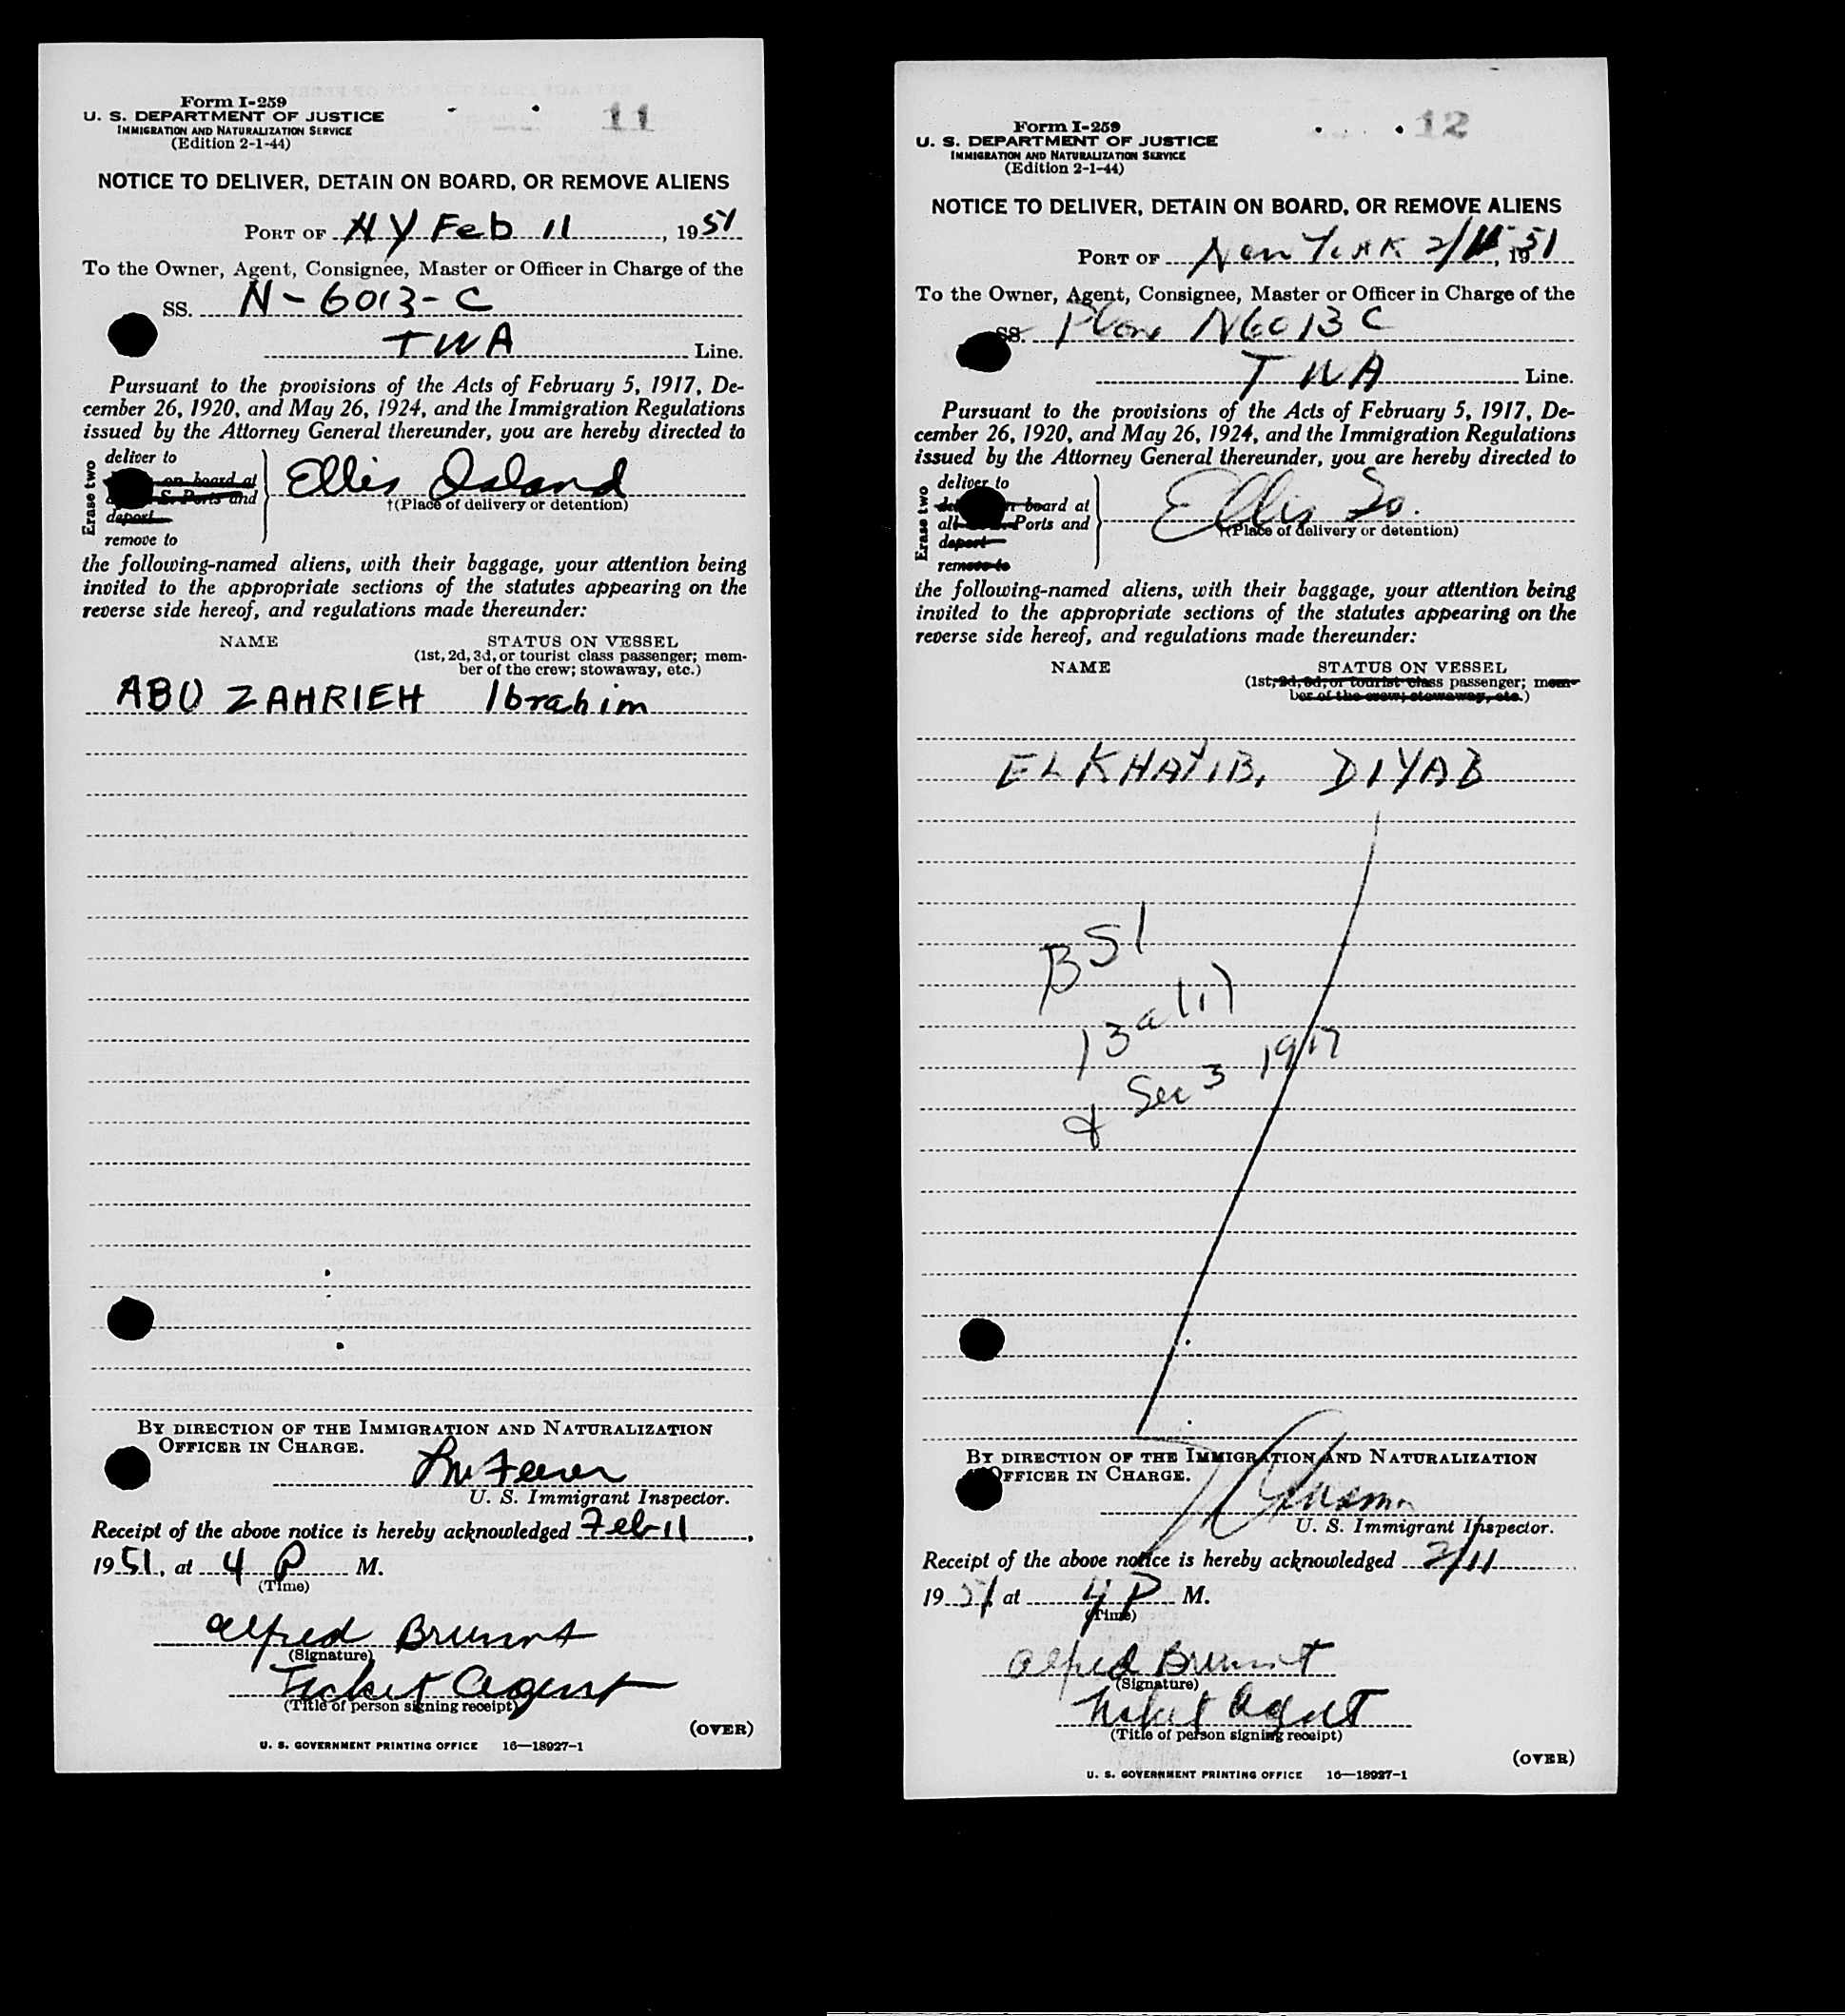 11
Form I-259
U. S. DEPARTMENT OF JUSTICE
IMMIGRATION AND NATURALIZATION SERVICE
(Edition 2-1-44)
NOTICE TO DELIVER, DETAIN ON BOARD, OR REMOVE ALIENS
PORT OF NY Feb 11, 1951
To the Owner, Agent, Consignee, Master or Officer in Charge of the
SS. N-6013-C
TWA Line.
Pursuant to the provisions of the Acts of February 5, 1917, De-
cember 26, 1920, and May 26, 1924, and the Immigration Regulations
issued by the Attorney General thereunder, you are hereby directed to
Erase two
deliver to
on board at
S. Ports and
deport
remove to
Ellis Island
†(Place of delivery or detention)
the following-named aliens, with their baggage, your attention being
invited to the appropriate sections of the statutes appearing on the
reverse side hereof, and regulations made thereunder:
NAME STATUS ON VESSEL
(1st, 2d, 3d, or tourist class passenger; mem-
ber of the crew; stowaway, etc.)
ABU ZAHRIEH Ibrahim
BY DIRECTION OF THE IMMIGRATION AND NATURALIZATION
OFFICER IN CHARGE.
U. S. Immigrant Inspector.
Receipt of the above notice is hereby acknowledged Feb 11,
1951, at 4 P M.
(Time)
Alfred
(Signature)
Ticket Agent
(Title of person signing receipt)
(OVER)
U. S. GOVERNMENT PRINTING OFFICE 16—18927-1
12
Form I-259
U. S. DEPARTMENT OF JUSTICE
IMMIGRATION AND NATURALIZATION SERVICE
(Edition 2-1-44)
NOTICE TO DELIVER, DETAIN ON BOARD, OR REMOVE ALIENS
PORT OF New York 2/11, 1951
To the Owner, Agent, Consignee, Master or Officer in Charge of the
SS. Plane N6013C
TWA Line.
Pursuant to the provisions of the Acts of February 5, 1917, De-
cember 26, 1920, and May 26, 1924, and the Immigration Regulations
issued by the Attorney General thereunder, you are hereby directed to
Erase two
deliver to
board at
all Ports and
deport
remove to
Ellis Is.
†(Place of delivery or detention)
the following-named aliens, with their baggage, your attention being
invited to the appropriate sections of the statutes appearing on the
reverse side hereof, and regulations made thereunder:
NAME STATUS ON VESSEL
(1st, 2d, 3d, or tourist class passenger; mem-
ber of the crew; stowaway, etc.)
ELKHATIB, DIYAB
BSI
13a(1)
& Sec 3 1917
BY DIRECTION OF THE IMMIGRATION AND NATURALIZATION
OFFICER IN CHARGE.
U. S. Immigrant Inspector.
Receipt of the above notice is hereby acknowledged 2/11
1951 at 4 P M.
(Time)
Alfred
(Signature)
Ticket Agent
(Title of person signing receipt)
(OVER)
U. S. GOVERNMENT PRINTING OFFICE 16—18927-1